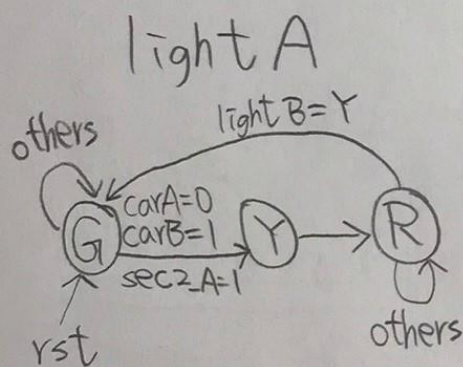 light A
light B=Y
others
carA=0
carB=1
G
Y
R
sec2_A=1
others
rst